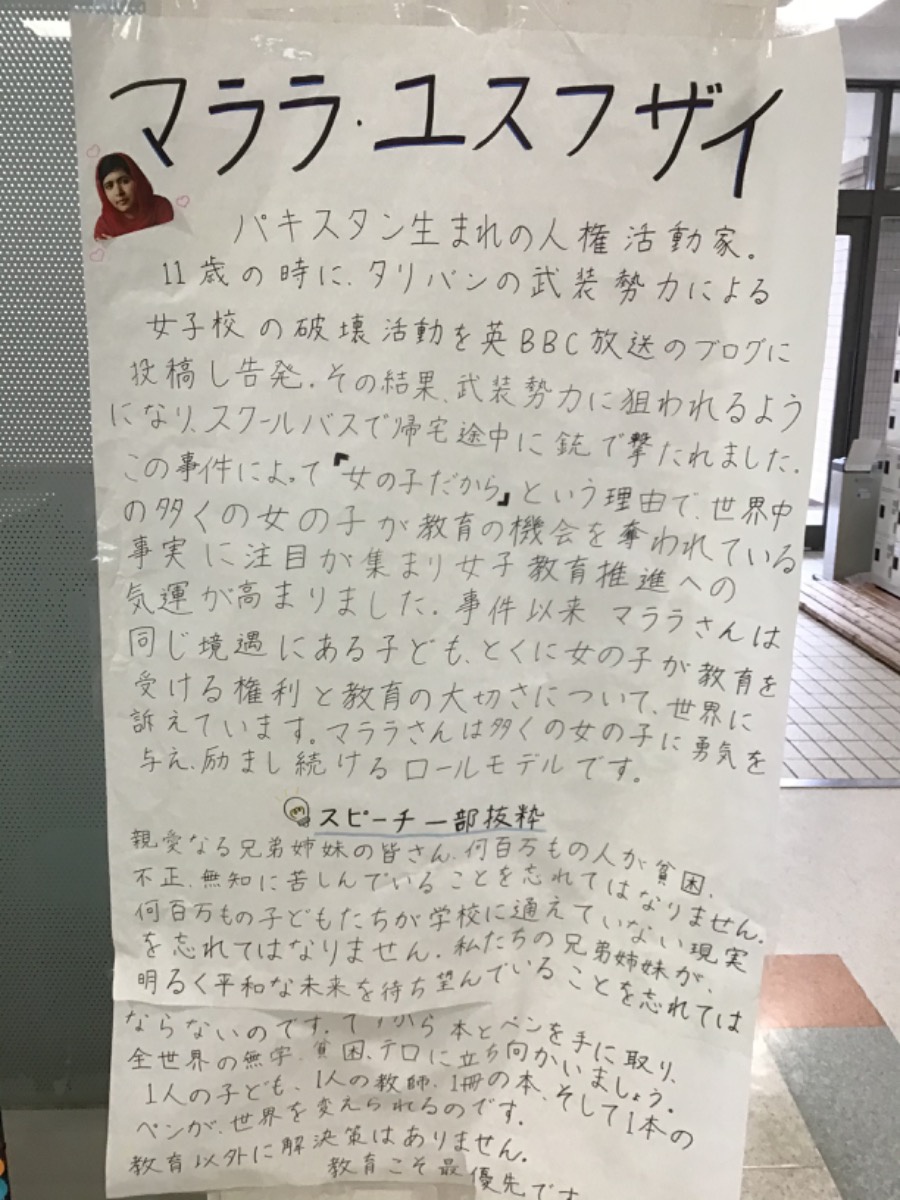 マララ・ユスフザイ
パキスタン生まれの人権活動家。
11歳の時に、タリバンの武装勢力による
女子校の破壊活動を英BBC放送のブログに
投稿し告発。その結果、武装勢力に狙われるよう
になり、スクールバスで帰宅途中に銃で撃たれました。
この事件によって『女の子だから』という理由で、世界中
の多くの女の子が教育の機会を奪われている
事実に注目が集まり女子教育推進への
気運が高まりました。事件以来 マララさんは
同じ境遇にある子ども、とくに女の子が教育を
受ける権利と教育の大切さについて、世界に
訴えています。マララさんは多くの女の子に勇気を
与え、励まし続けるロールモデルです。
スピーチ一部抜粋
親愛なる兄弟姉妹の皆さん、何百万もの人が貧困、
不正、無知に苦しんでいることを忘れてはなりません。
何百万もの子どもたちが学校に通えていない現実
を忘れてはなりません。私たちの兄弟姉妹が、
明るく平和な未来を待ち望んでいることを忘れては
ならないのです。から 本とペンを手に取り、
全世界の無学、貧困、テロに立ち向かいましょう。
1人の子ども、1人の教師、1冊の本、そして1本の
ペンが、世界を変えられるのです。
教育以外に解決策はありません。
教育こそ最優先です